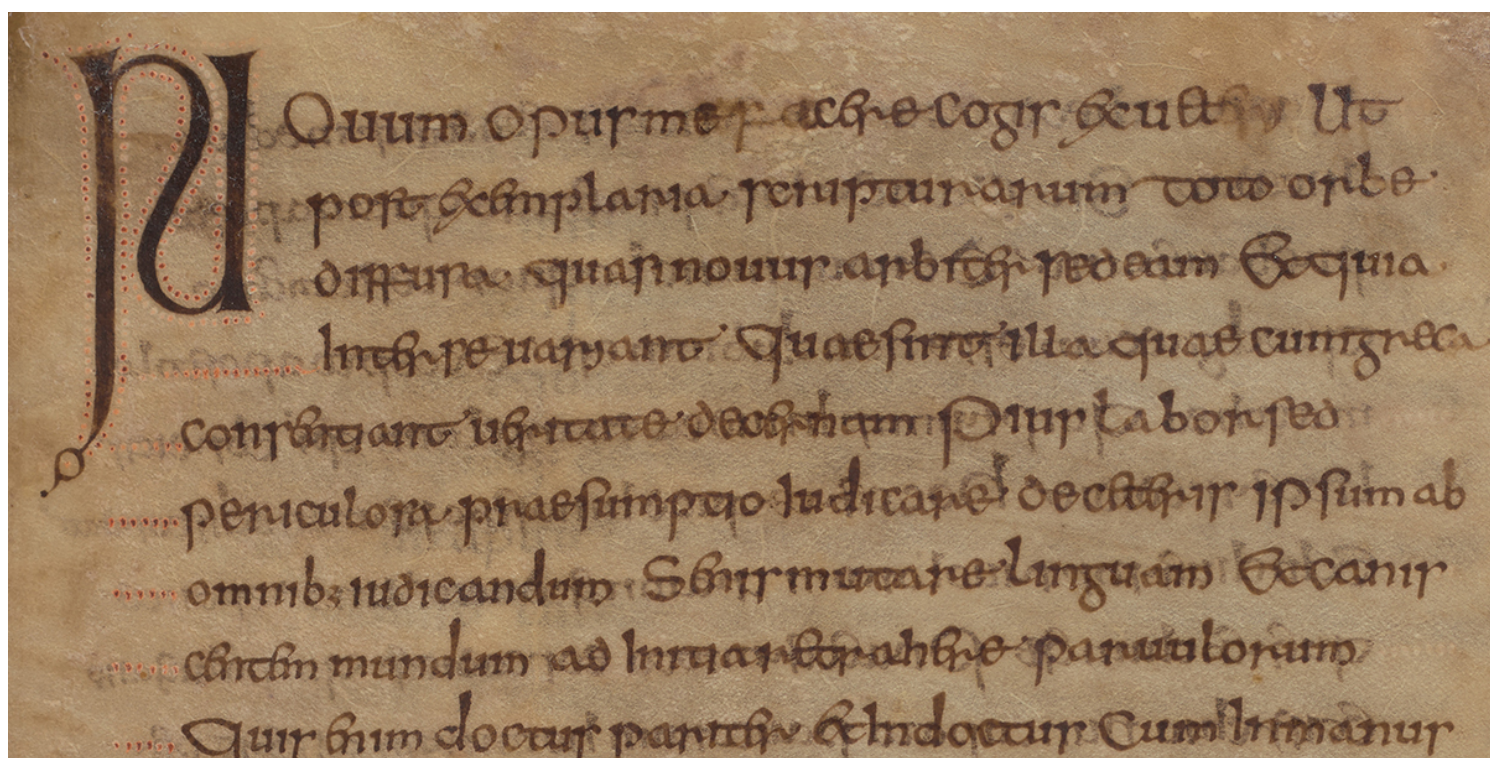 NOuum opus me facere cogis ex ueteri Ut
post exemplaria scripturarum toto orbe
diffusa quasi nouus arbiter sedeam Et quia
Inter se uariant Quae sint illa quae cum greca
consentiant ueritate decernam Pius Labor sed
periculosa praesumptio Iudicare de ceteris ipsum ab
omnib; iudicandum Senis mutare linguam Et canis
centem mundum ad Initia retrahere paruulorum
Quis enim doctus pariter et Indoctus Cum In manus